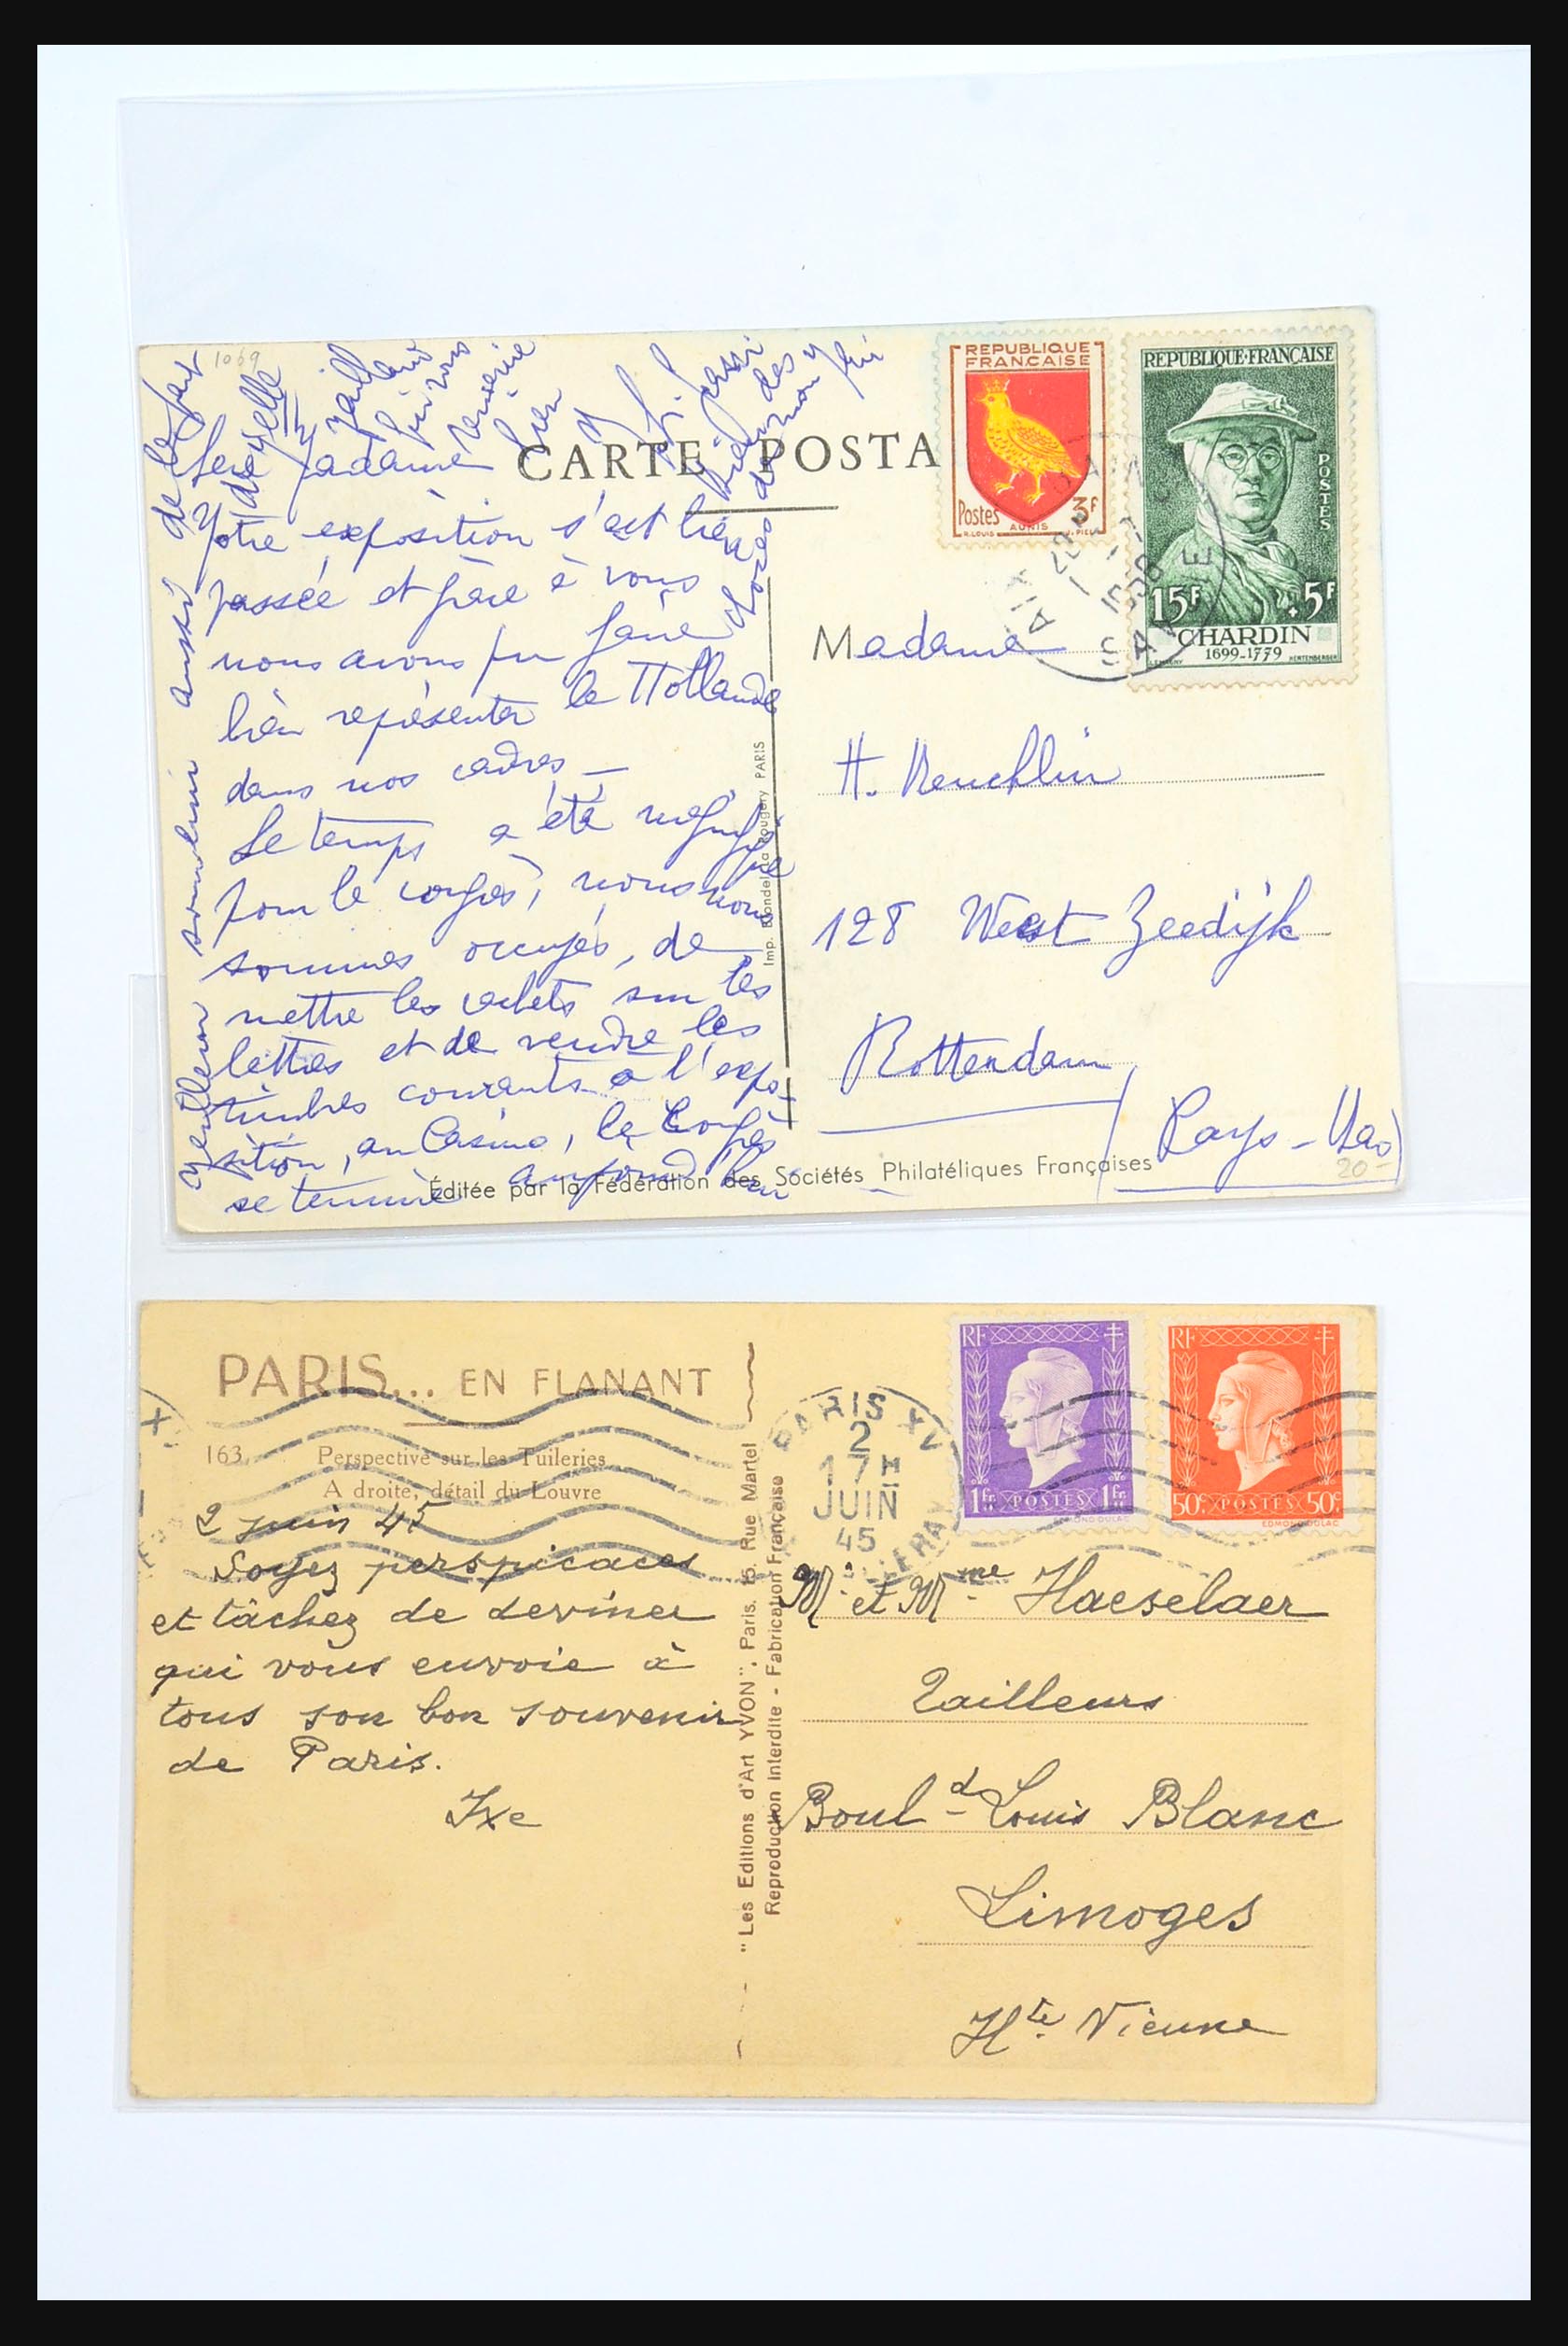 1069
CARTE POSTA
REPUBLIQUE
FRANCAISE
Postes 3F
AUNIS
REPUBLIQUE·FRANÇAISE
POSTES
15F +5F
CHARDIN
1699-1779
Chère Madame
Votre exposition s'est bien
passée et grâce à vous
nous avons pu faire
bien représenter la Hollande
dans nos cadres —
Le temps a été
pour le congrès, nous nous
sommes occupés, de
mettre les cachets sur les
lettres et de vendre les
timbres courants à l'expo-
sition, au Casino, le Congrès
se termine aujourd'hui
Madame
H. Reuchlin
128 West Zeedijk
Rotterdam
Pays-Bas
20-
Imp. Blondel La Rougery PARIS
Éditée par la Fédération des Sociétés Philatéliques Françaises
PARIS... EN FLANANT
163. Perspective sur les Tuileries
A droite, détail du Louvre
2 juin 45
Soyez perspicaces
et tâchez de deviner
qui vous envoie à
tous son bon souvenir
de Paris.
Ixe
"Les Editions d'Art YVON". Paris. 15. Rue Martel
Reproduction Interdite - Fabrication Française
PARIS XV
2
17H
JUIN
45
RF
1fr POSTES 1fr
RF
50c POSTES 50c
EDMOND DULAC
Mr et Mme Haeselaer
Tailleurs
Bould Louis Blanc
Limoges
Hte Vienne